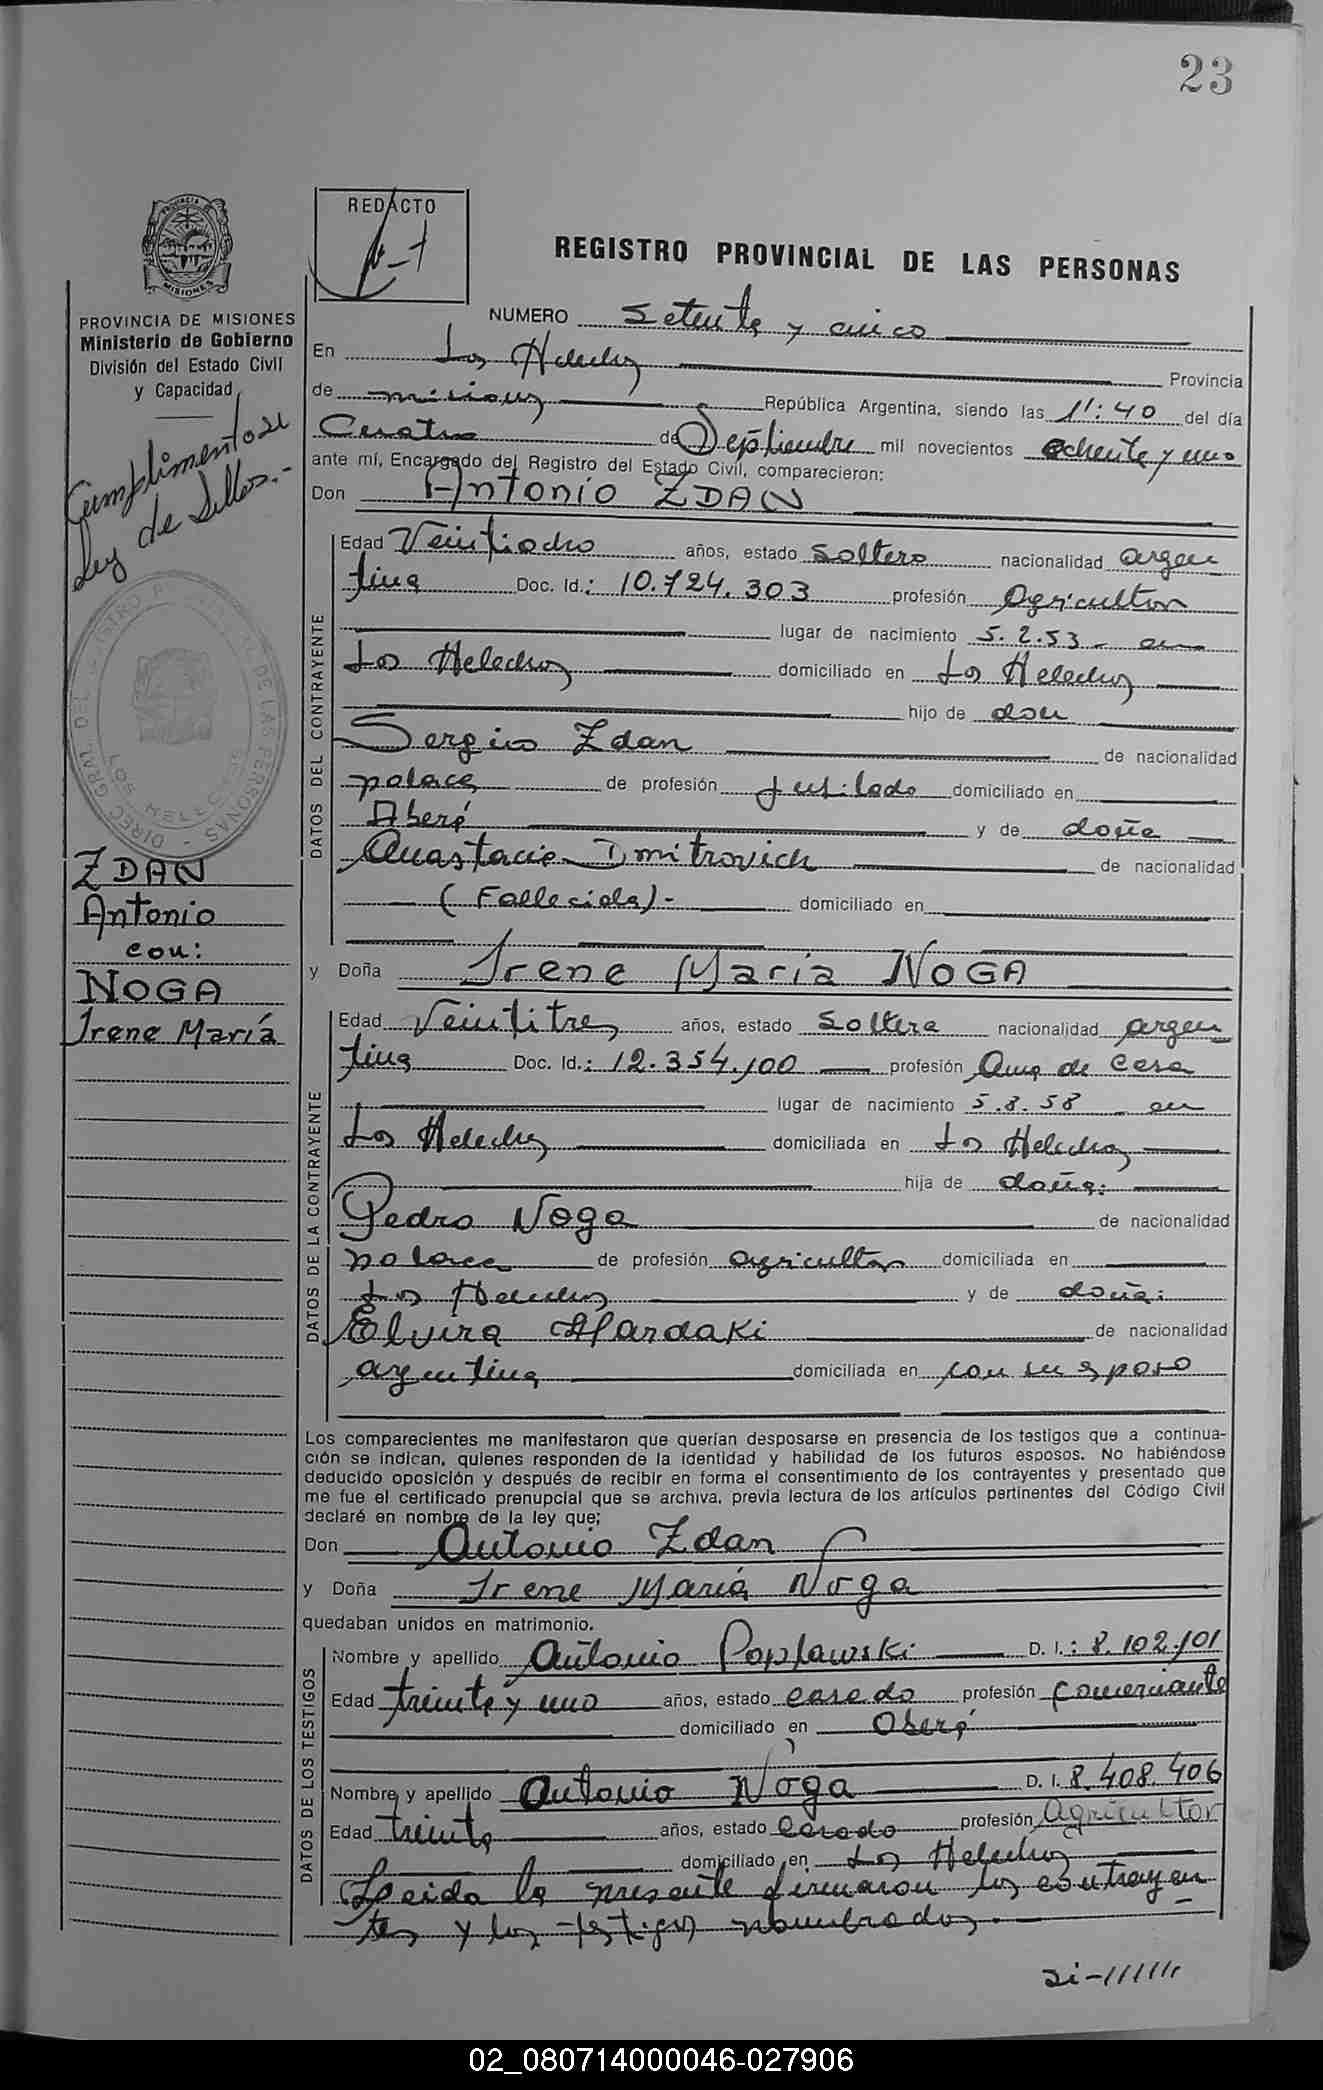 23
REDACTO
REGISTRO PROVINCIAL DE LAS PERSONAS
PROVINCIA DE MISIONES
Ministerio de Gobierno
División del Estado Civil
y Capacidad
Cumplimentose
Ley de Sellos.-
DIREC. GRAL. DEL REGISTRO DE LAS PERSONAS
LOS HELECHOS
ZDAN
Antonio
con:
NOGA
Irene María
NUMERO Setenta y cinco
En Los Helechos Provincia
de misiones República Argentina, siendo las 11:40 del día
Cuatro de Septiembre mil novecientos ochenta y uno
ante mí, Encargado del Registro del Estado Civil, comparecieron:
Don Antonio ZDAN
DATOS DEL CONTRAYENTE
Edad Veintiocho años, estado soltero nacionalidad argen
tina Doc. Id.: 10.724.303 profesión Agricultor
lugar de nacimiento 5.2.53 - en
Los Helechos domiciliado en Los Helechos
hijo de don
Sergio Zdan de nacionalidad
polaca de profesión Jubilado domiciliado en
Oberá y de doña
Anastacia Dmitrovich de nacionalidad
(Fallecida)- domiciliado en
y Doña Irene María NOGA
DATOS DE LA CONTRAYENTE
Edad Veintitres años, estado soltera nacionalidad argen
tina Doc. Id.: 12.354.100 profesión Ama de casa
lugar de nacimiento 5.8.58 en
Los Helechos domiciliada en Los Helechos
hija de doña:
Pedro Noga de nacionalidad
polaca de profesión agricultor domiciliada en
Los Helechos y de doña:
Elvira de nacionalidad
argentina domiciliada en con su esposo
Los comparecientes me manifestaron que querían desposarse en presencia de los testigos que a continua-
ción se indican, quienes responden de la identidad y habilidad de los futuros esposos. No habiéndose
deducido oposición y después de recibir en forma el consentimiento de los contrayentes y presentado que
me fue el certificado prenupcial que se archiva, previa lectura de los artículos pertinentes del Código Civil
declaré en nombre de la ley que;
Don Antonio Zdan
y Doña Irene María Noga
quedaban unidos en matrimonio.
DATOS DE LOS TESTIGOS
Nombre y apellido Antonio Poplawski D. I.: 8.102.101
Edad treinta y uno años, estado casado profesión comerciante
domiciliado en Oberá
Nombre y apellido Antonio Noga D. I. 8.408.406
Edad treinta años, estado Casado profesión Agricultor
domiciliado en Los Helechos
Leida la presente firmaron los contrayen
tes y los testigos nombrados.
02_080714000046-027906